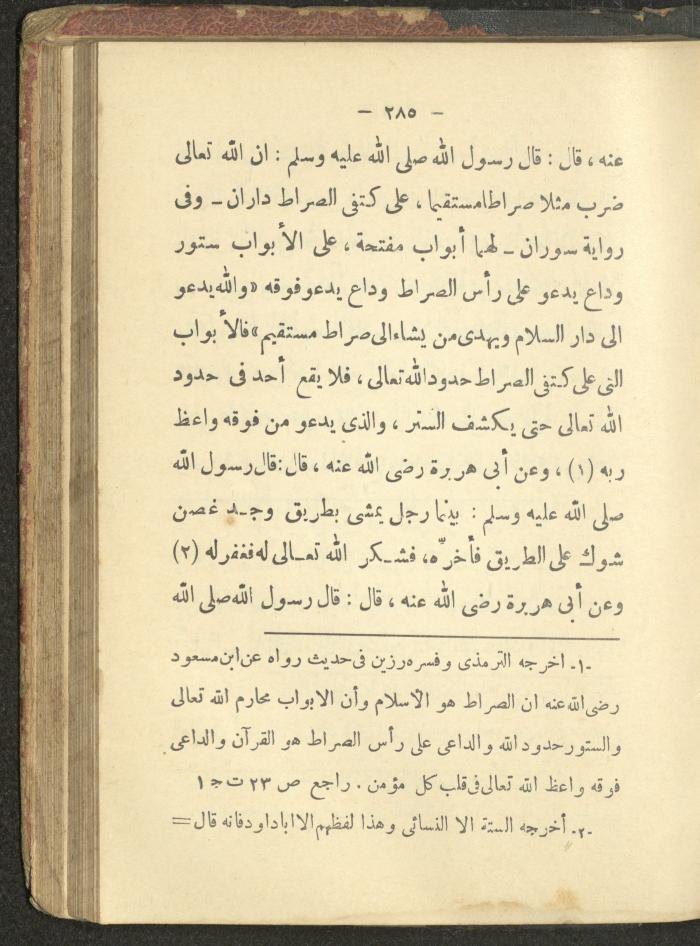 — ٢٨٥ —
عنه ، قال : قال رسول الله صلى الله عليه وسلم : ان الله تعالى
ضرب مثلا صراطا مستقيما ، على كتفى الصراط داران ـ وفى
رواية سوران ـ لهما أبواب مفتحة ، على الأبواب ستور
وداع يدعو على رأس الصراط وداع يدعو فوقه «والله يدعو
الى دار السلام ويهدى من يشاء الى صراط مستقيم» فالأبواب
التى على كتفى الصراط حدود الله تعالى ، فلا يقع أحد فى حدود
الله تعالى حتى يكشف الستر ، والذى يدعو من فوقه واعظ
ربه (١) ، وعن أبى هريرة رضى الله عنه ، قال: قال رسول الله
صلى الله عليه وسلم : بينما رجل يمشى بطريق وجد غصن
شوك على الطريق فأخرّه، فشكر الله تعالى له فغفر له (٢)
وعن أبى هريرة رضى الله عنه ، قال : قال رسول الله صلى الله
-١- اخرجه الترمذى وفسره رزين فى حديث رواه عن ابن مسعود
رضى الله عنه ان الصراط هو الاسلام وأن الابواب محارم الله تعالى
والستور حدود الله والداعى على رأس الصراط هو القرآن والداعى
فوقه واعظ الله تعالى فى قلب كل مؤمن . راجع ص ٢٣ ت ج ١
-٢- أخرجه الستة الا النسائى وهذا لفظهم الا اباداود فانه قال =